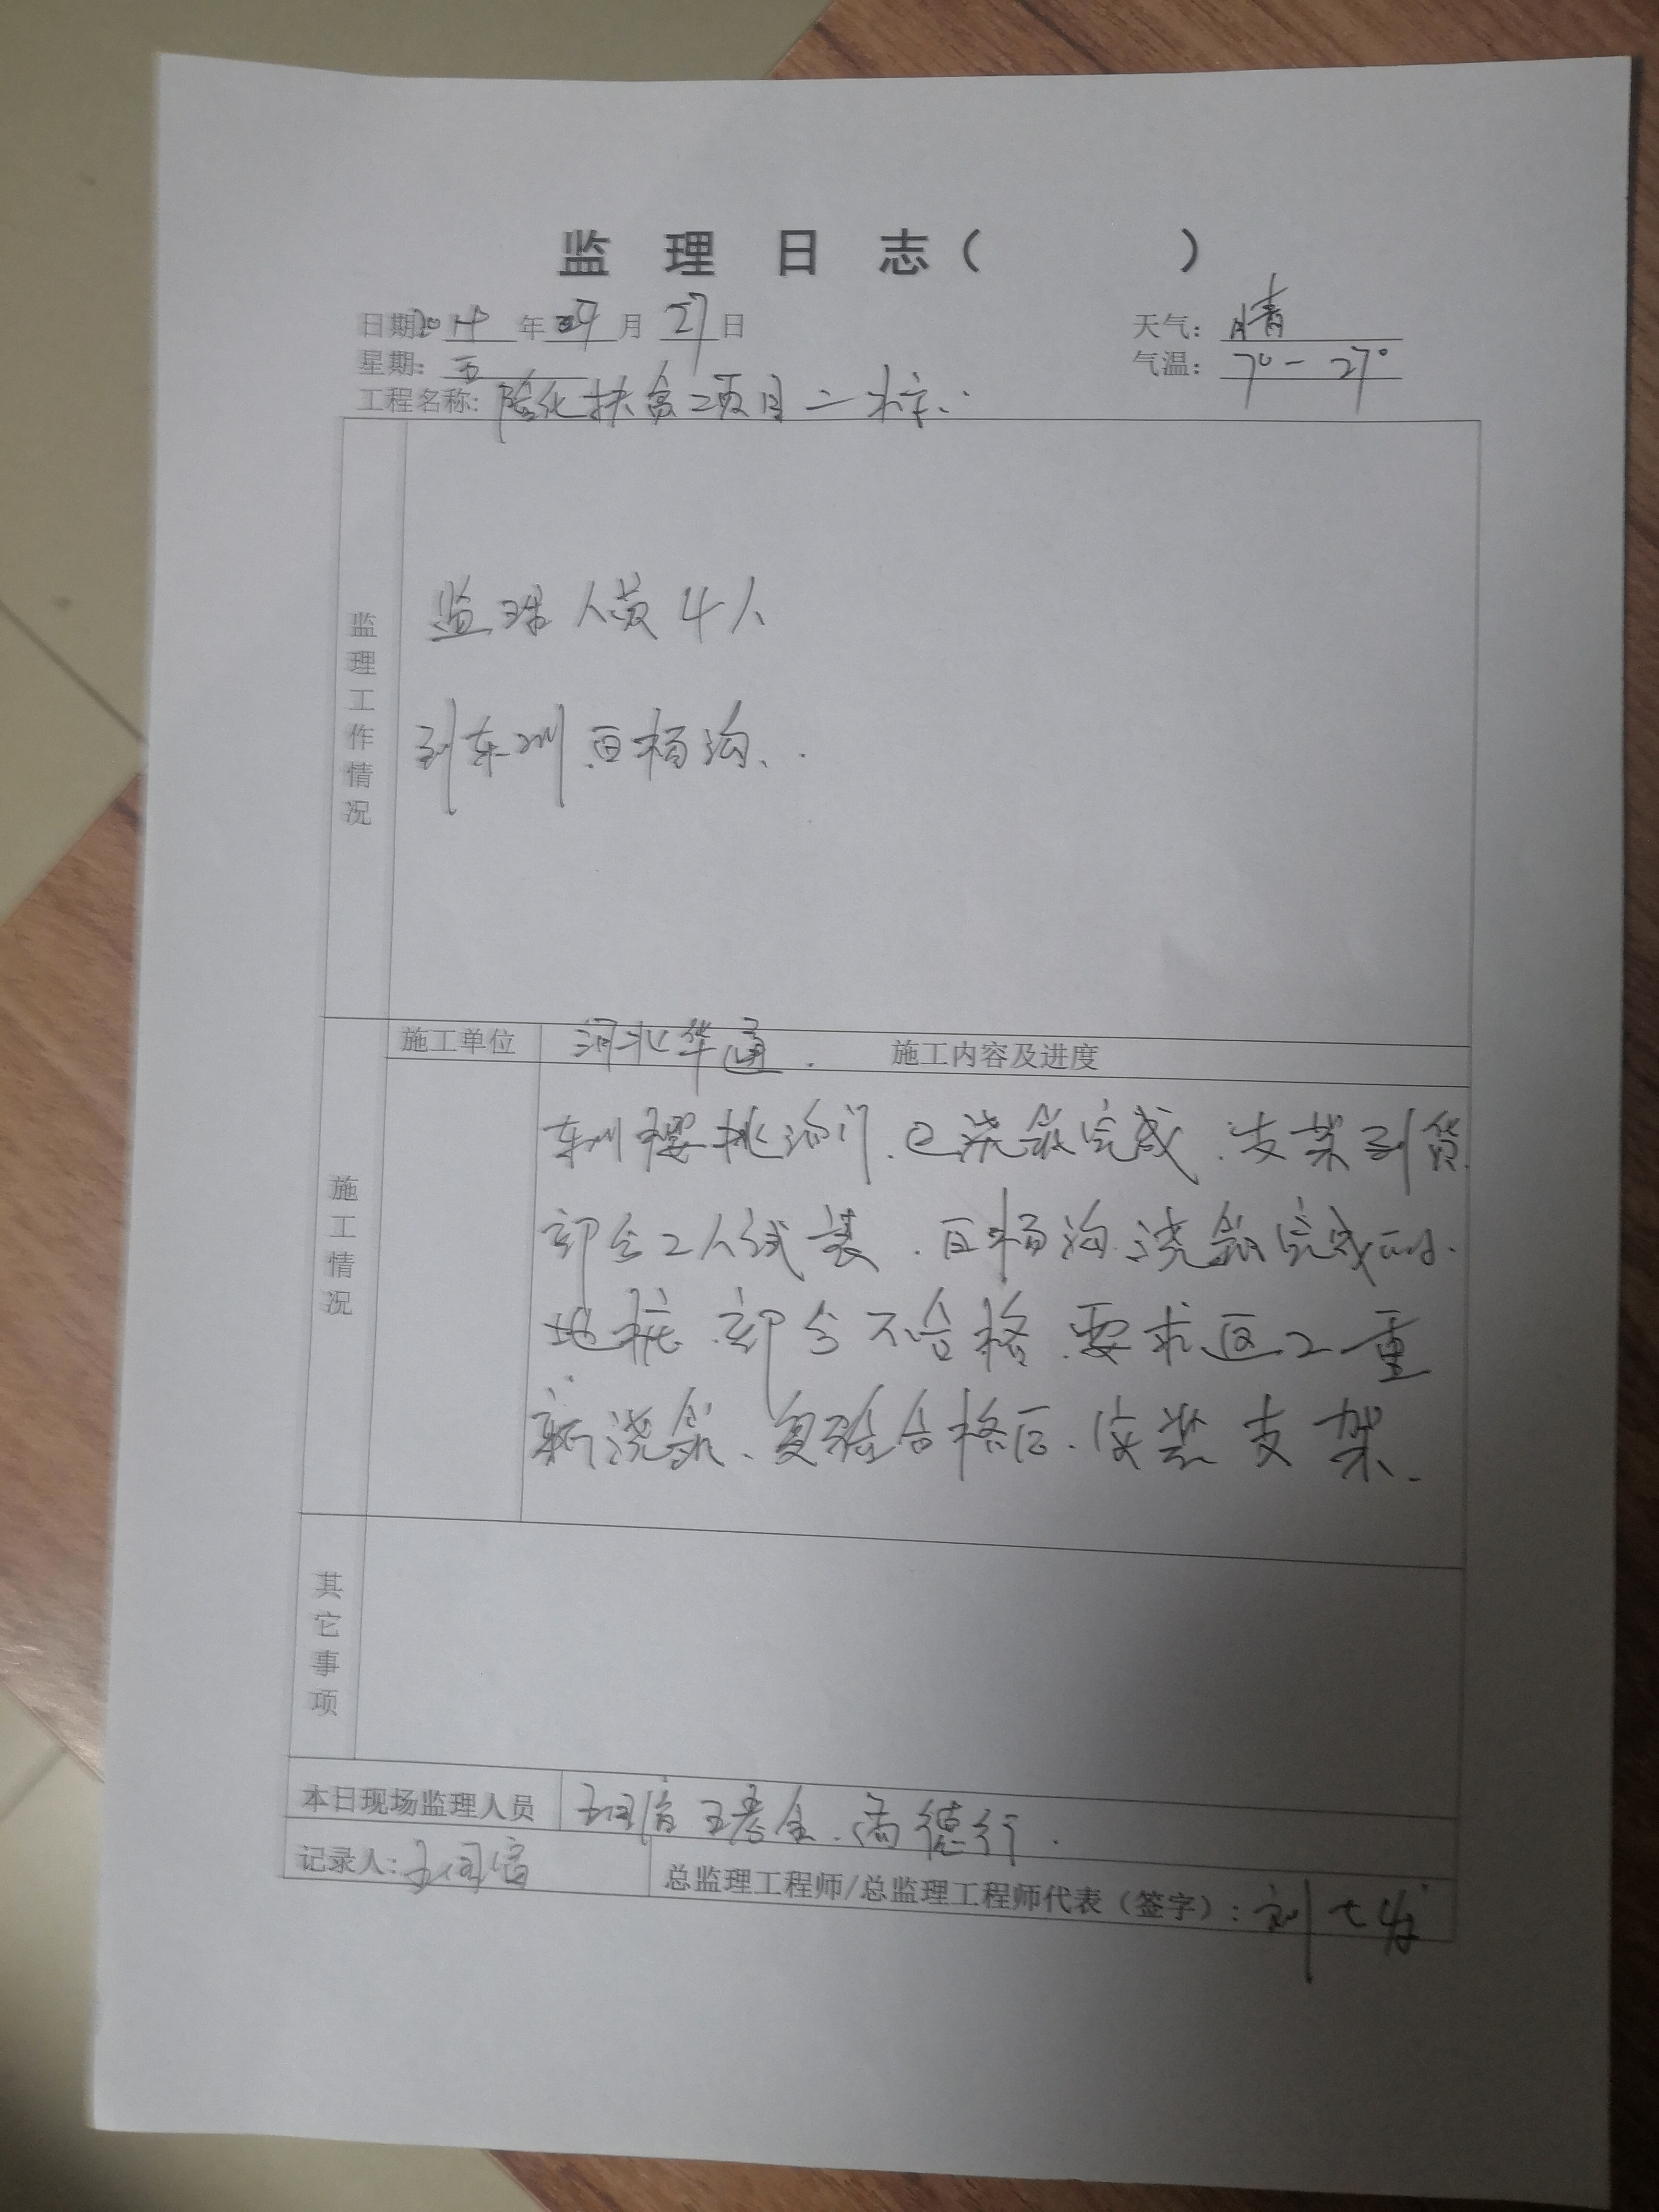 监 理 日 志（ ）
日期 20 年 月 27 日 天气：晴
星期：五 气温：7°－27°
工程名称：隆化扶贫工项目二标．
监理工作情况
监理人员4人
到东川百杨沟、．
施工情况
施工单位 河北华通． 施工内容及进度
东川樱桃沟门、已浇筑完成．支架到货．
部分工人试装．百杨沟浇筑完成的．
地桩．部分不合格．要求返工重
新浇筑、复验合格后．安装支架．
其它事项
本日现场监理人员 德行．
记录人：
总监理工程师/总监理工程师代表（签字）：刘